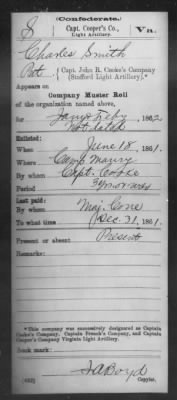 (Confederate.)
S Capt. Cooper's Co., Va.
Light Artillery.
Charles Smith
Pvt., Capt. John R. Cooke's Company
(Stafford Light Artillery).*
Appears on
Company Muster Roll
of the organization named above,
for Jany & Feby, 1862.
Not dated
Enlisted:
When June 18, 1861.
Where Camp Maury
By whom Capt. Cooke
Period
Last paid:
By whom Maj. Cone
To what time Dec. 31, 1861.
Present or absent Present
Remarks:
*This company was successively designated as Captain
Cooke's Company, Captain French's Company, and Captain
Cooper's Company Virginia Light Artillery.
Book mark:
(642) Copyist.